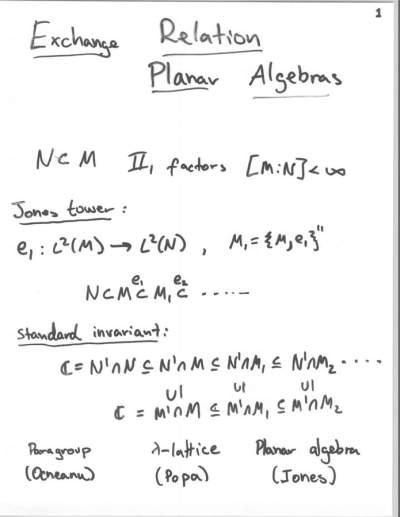 1
Exchange Relation
Planar Algebras
N ⊂ M II₁ factors [M:N] < ∞
Jones tower :
e₁ : L²(M) → L²(N) , M₁ = {M, e₁}"
N ⊂ M ⊂^{e₁} M₁ ⊂^{e₂} ......
Standard invariant:
ℂ = N'∩N ⊆ N'∩M ⊆ N'∩M₁ ⊆ N'∩M₂ ....
∪| ∪| ∪|
ℂ = M'∩M ⊆ M'∩M₁ ⊆ M'∩M₂
Paragroup λ-lattice Planar algebra
(Ocneanu) (Popa) (Jones)